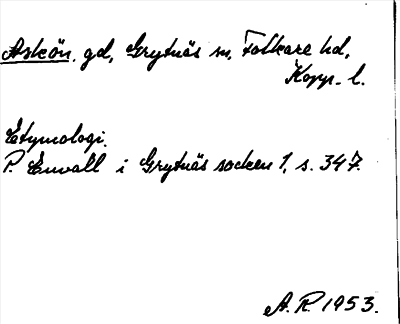 Askön. gd, Grytnäs sn, Folkare hd,
Kopp. l.
Etymologi.
P. Envall i Grytnäs socken 1, s. 347.
A.R. 1953.